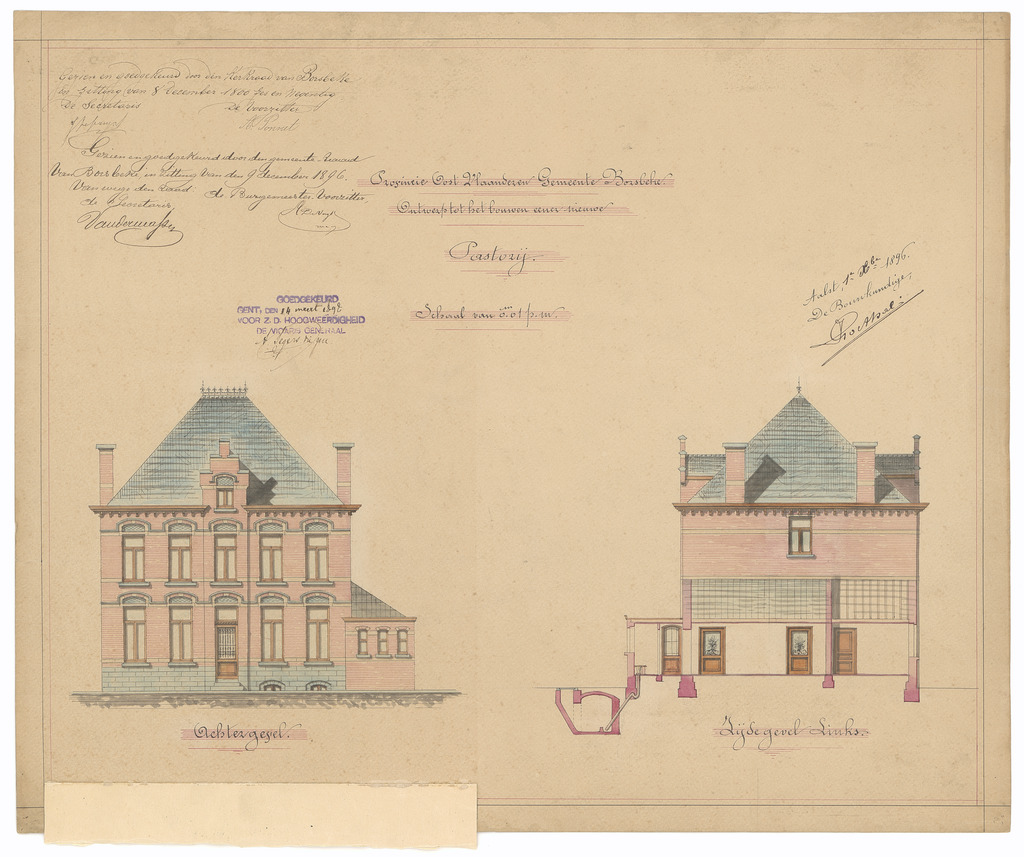 Gezien en goedgekeurd door den Kerkraad van Borsbeke
in zitting van 8 December 1800 zes en Negentig
De Secretaris De Voorzitter
Gezien en goedgekeurd door den gemeente-raad
Van Borsbeke, in zitting van den 9 december 1896.
Van wege den Raad
de Secretaris, de Burgemeester Voorzitter,
Provincie Oost Vlaanderen Gemeente Borsbeke.
Ontwerp tot het bouwen eener nieuwe
Pastorij.
Schaal van 0.01 p.m.
GOEDGEKEURD
GENT, DEN 14 meert 1898
VOOR Z. D. HOOGWEERDIGHEID
DE VICARIS GENERAAL
Aalst, 1n Xbr 1896.
De Bouwkundige,
Achtergevel.
Zijdegevel Links.